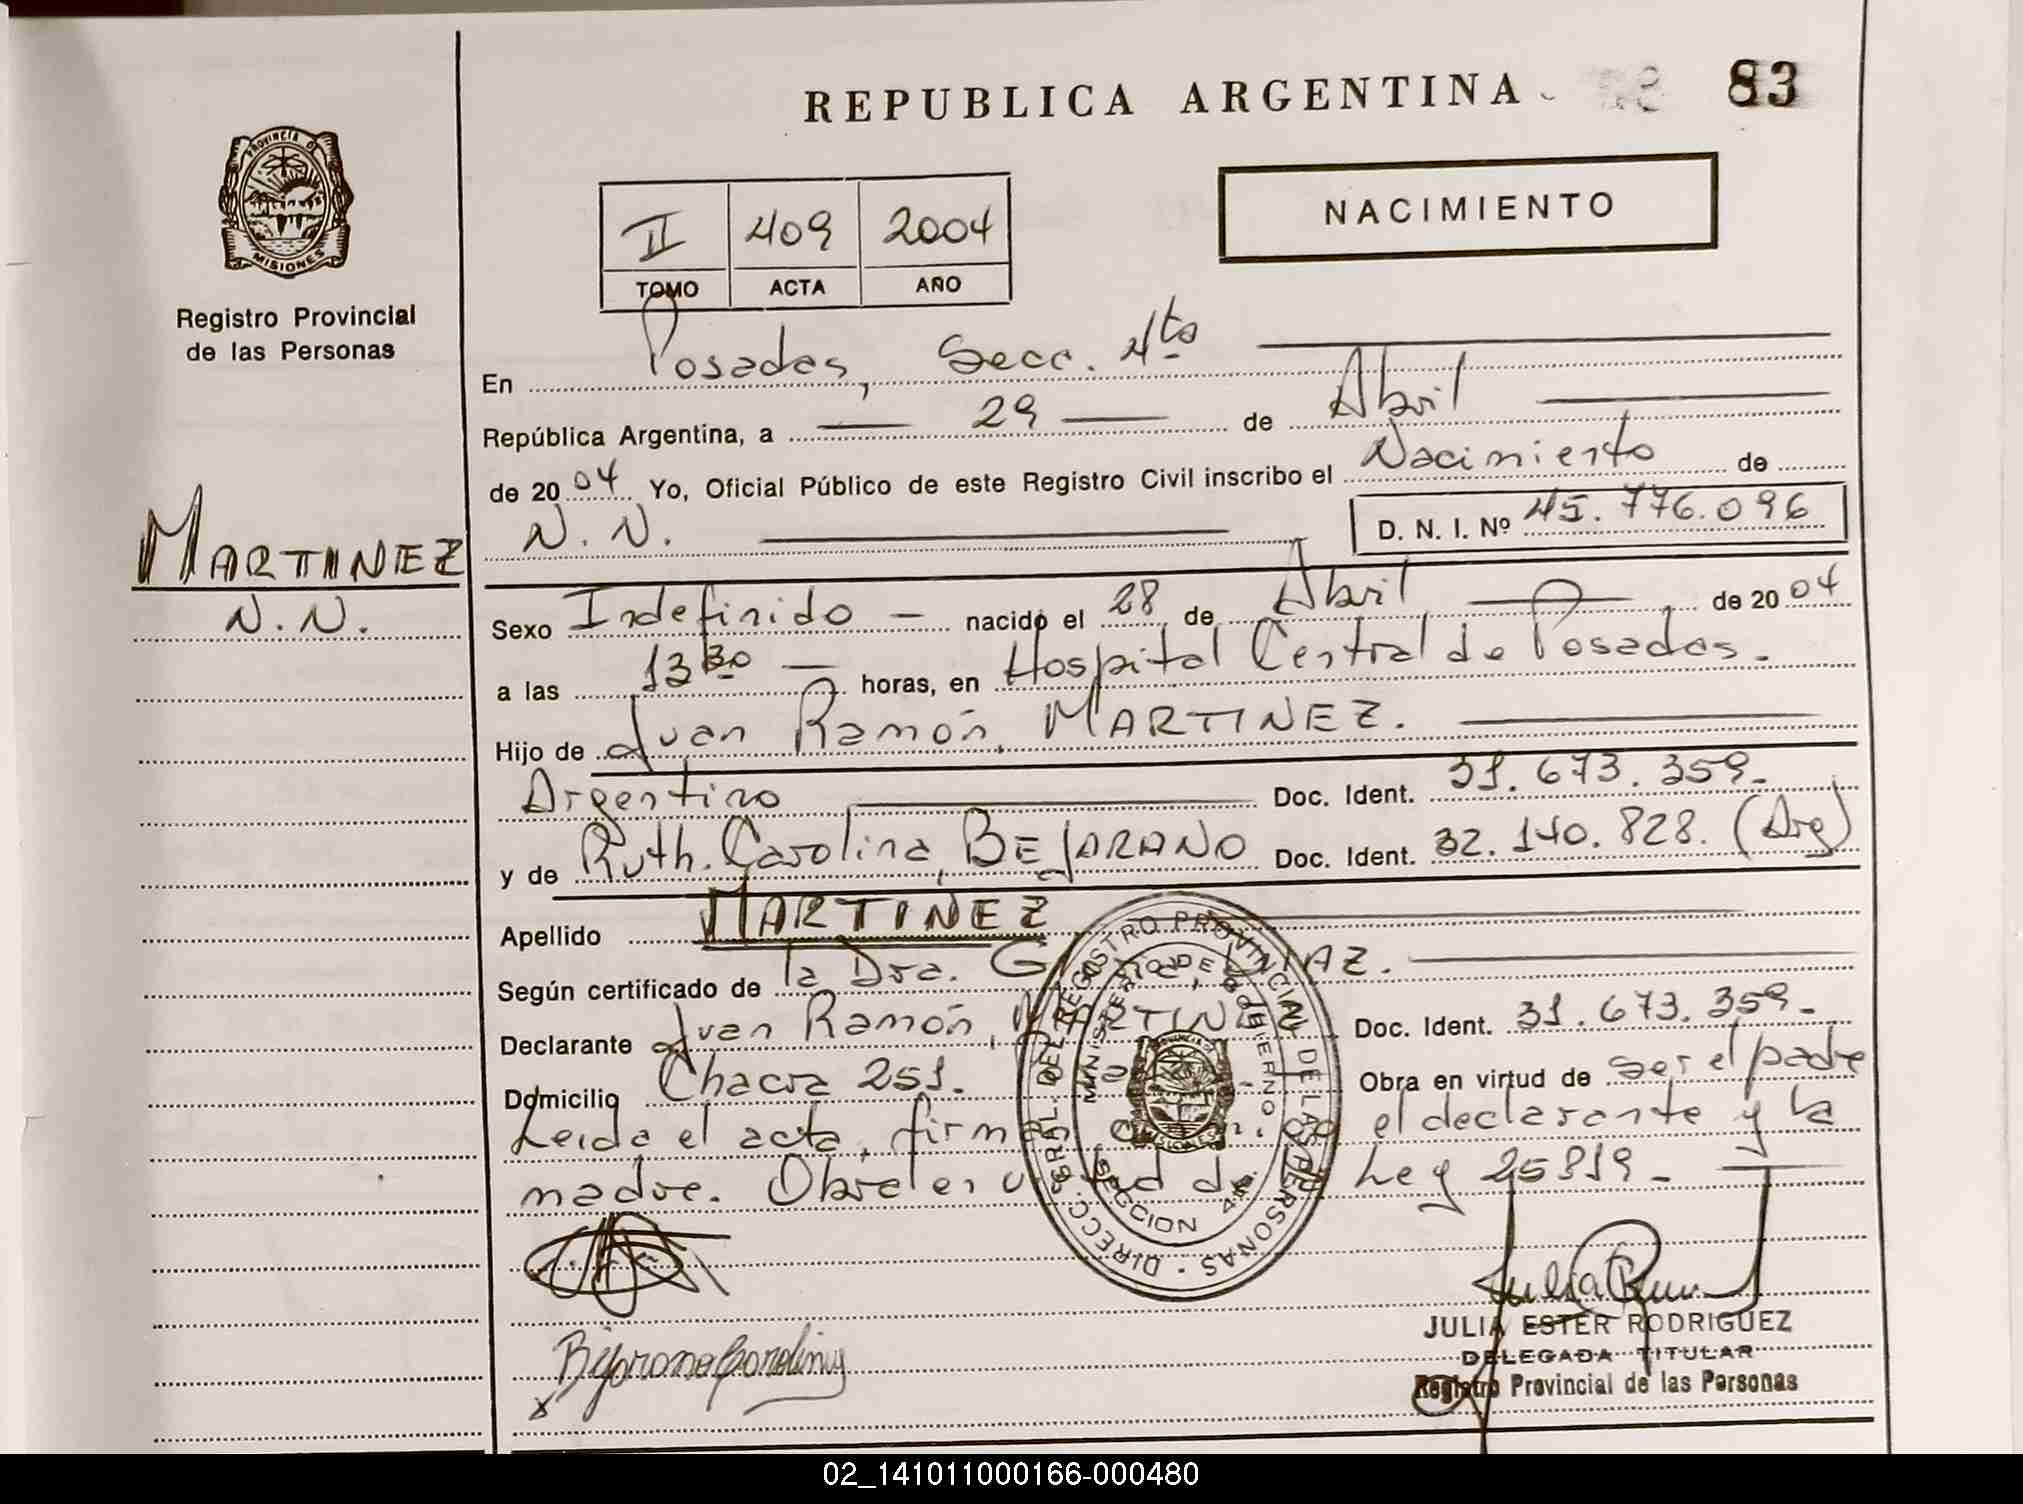 REPUBLICA ARGENTINA
83
PROVINCIA DE
MISIONES
Registro Provincial
de las Personas
II 409 2004
TOMO ACTA AÑO
NACIMIENTO
En Posadas, Secc. 4ta
República Argentina, a 29 de Abril
de 2004 Yo, Oficial Público de este Registro Civil inscribo el Nacimiento de
N. N. D. N. I. Nº 45.776.096
MARTINEZ
N. N.
Sexo Indefinido - nacido el 28 de Abril de 2004
a las 13 30 - horas, en Hospital Central de Posadas.
Hijo de Juan Ramón, MARTINEZ.
Argentino Doc. Ident. 31.673.359.
y de Ruth Carolina, BEJARANO Doc. Ident. 32.140.828. (Arg)
Apellido MARTINEZ
Según certificado de la Dra.
Declarante Juan Ramón, MARTINEZ Doc. Ident. 31.673.359.
Domicilio Chacra 251. Obra en virtud de ser el padre
Leida el acta, el declarante y la
madre. Ley 25819.
DIRECC. GRAL. DEL REGISTRO PROVINCIAL DE LAS PERSONAS
MINISTERIO DE GOBIERNO
SECCION 4ta.
JULIA ESTER RODRIGUEZ
DELEGADA TITULAR
Registro Provincial de las Personas
02_141011000166-000480